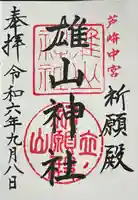 芦峅中宮
祈願殿
雄山神社
奉拝 令和六年九月八日